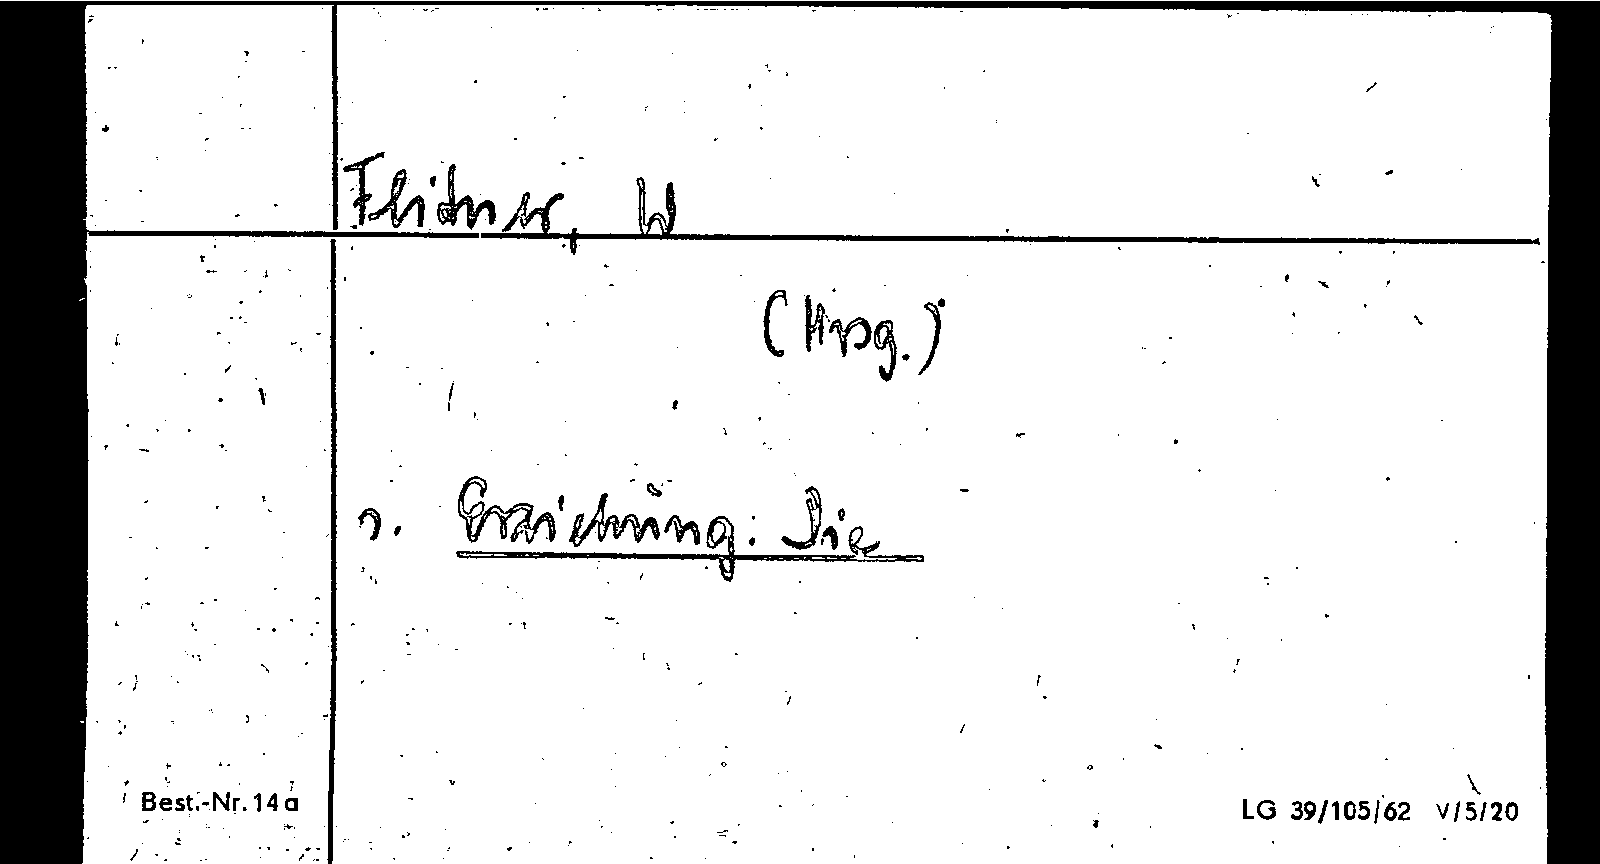 Flitner, W
(Hrsg.)
s. Erziehung: Die
Best.-Nr. 14a
LG 39/105/62 V/5/20